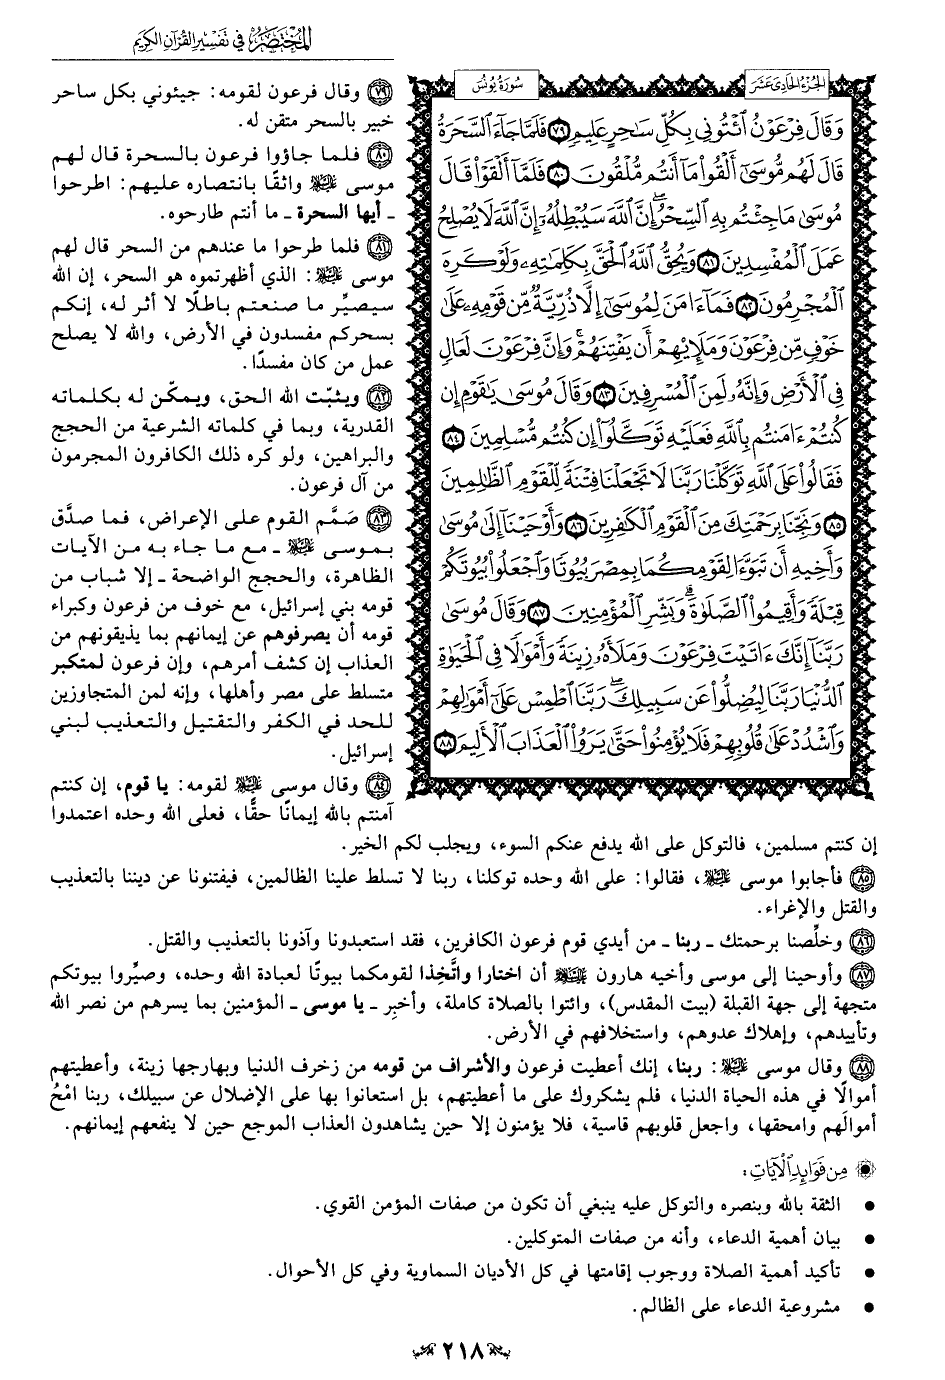 المختصر في تفسير القرآن الكريم
الجزء الحادي عشر
سورة يونس
وَقَالَ فِرْعَوْنُ ٱئْتُونِي بِكُلِّ سَٰحِرٍ عَلِيمٖ ۝٧٩ فَلَمَّا جَآءَ ٱلسَّحَرَةُ
قَالَ لَهُم مُّوسَىٰٓ أَلْقُوا۟ مَآ أَنتُم مُّلْقُونَ ۝٨٠ فَلَمَّآ أَلْقَوْا۟ قَالَ
مُوسَىٰ مَا جِئْتُم بِهِ ٱلسِّحْرُۖ إِنَّ ٱللَّهَ سَيُبْطِلُهُۥٓ إِنَّ ٱللَّهَ لَا يُصْلِحُ
عَمَلَ ٱلْمُفْسِدِينَ ۝٨١ وَيُحِقُّ ٱللَّهُ ٱلْحَقَّ بِكَلِمَٰتِهِۦ وَلَوْ كَرِهَ
ٱلْمُجْرِمُونَ ۝٨٢ فَمَآ ءَامَنَ لِمُوسَىٰٓ إِلَّا ذُرِّيَّةٞ مِّن قَوْمِهِۦ عَلَىٰ
خَوْفٖ مِّن فِرْعَوْنَ وَمَلَإِي۟هِمْ أَن يَفْتِنَهُمْۚ وَإِنَّ فِرْعَوْنَ لَعَالٖ
فِي ٱلْأَرْضِ وَإِنَّهُۥ لَمِنَ ٱلْمُسْرِفِينَ ۝٨٣ وَقَالَ مُوسَىٰ يَٰقَوْمِ إِن
كُنتُمْ ءَامَنتُم بِٱللَّهِ فَعَلَيْهِ تَوَكَّلُوٓا۟ إِن كُنتُم مُّسْلِمِينَ ۝٨٤
فَقَالُوا۟ عَلَى ٱللَّهِ تَوَكَّلْنَا رَبَّنَا لَا تَجْعَلْنَا فِتْنَةٗ لِّلْقَوْمِ ٱلظَّٰلِمِينَ
۝٨٥ وَنَجِّنَا بِرَحْمَتِكَ مِنَ ٱلْقَوْمِ ٱلْكَٰفِرِينَ ۝٨٦ وَأَوْحَيْنَآ إِلَىٰ مُوسَىٰ
وَأَخِيهِ أَن تَبَوَّءَا لِقَوْمِكُمَا بِمِصْرَ بُيُوتٗا وَٱجْعَلُوا۟ بُيُوتَكُمْ
قِبْلَةٗ وَأَقِيمُوا۟ ٱلصَّلَوٰةَۗ وَبَشِّرِ ٱلْمُؤْمِنِينَ ۝٨٧ وَقَالَ مُوسَىٰ
رَبَّنَآ إِنَّكَ ءَاتَيْتَ فِرْعَوْنَ وَمَلَأَهُۥ زِينَةٗ وَأَمْوَٰلٗا فِي ٱلْحَيَوٰةِ
ٱلدُّنْيَا رَبَّنَا لِيُضِلُّوا۟ عَن سَبِيلِكَۖ رَبَّنَا ٱطْمِسْ عَلَىٰٓ أَمْوَٰلِهِمْ
وَٱشْدُدْ عَلَىٰ قُلُوبِهِمْ فَلَا يُؤْمِنُوا۟ حَتَّىٰ يَرَوُا۟ ٱلْعَذَابَ ٱلْأَلِيمَ ۝٨٨
٧٩ وقال فرعون لقومه: جيئوني بكل ساحر
خبير بالسحر متقن له.
٨٠ فلما جاؤوا فرعون بالسحرة قال لهم
موسى عليه السلام واثقًا بانتصاره عليهم: اطرحوا
ـ أيها السحرة ـ ما أنتم طارحوه.
٨١ فلما طرحوا ما عندهم من السحر قال لهم
موسى عليه السلام: الذي أظهرتموه هو السحر، إن الله
سيصيِّر ما صنعتم باطلًا لا أثر له، إنكم
بسحركم مفسدون في الأرض، والله لا يصلح
عمل من كان مفسدًا.
٨٢ ويثبّت الله الحق، ويمكّن له بكلماته
القدرية، وبما في كلماته الشرعية من الحجج
والبراهين، ولو كره ذلك الكافرون المجرمون
من آل فرعون.
٨٣ صَمَّم القوم على الإعراض، فما صدَّق
بموسى عليه السلام ـ مع ما جاء به من الآيات
الظاهرة، والحجج الواضحة ـ إلا شباب من
قومه بني إسرائيل، مع خوف من فرعون وكبراء
قومه أن يصرفوهم عن إيمانهم بما يذيقونهم من
العذاب إن كشف أمرهم، وإن فرعون لمتكبر
متسلط على مصر وأهلها، وإنه لمن المتجاوزين
للحد في الكفر والتقتيل والتعذيب لبني
إسرائيل.
٨٤ وقال موسى عليه السلام لقومه: يا قوم، إن كنتم
آمنتم بالله إيمانًا حقًّا، فعلى الله وحده اعتمدوا
إن كنتم مسلمين، فالتوكل على الله يدفع عنكم السوء، ويجلب لكم الخير.
٨٥ فأجابوا موسى عليه السلام، فقالوا: على الله وحده توكلنا، ربنا لا تسلط علينا الظالمين، فيفتنونا عن ديننا بالتعذيب
والقتل والإغراء.
٨٦ وخلِّصنا برحمتك ـ ربنا ـ من أيدي قوم فرعون الكافرين، فقد استعبدونا وآذونا بالتعذيب والقتل.
٨٧ وأوحينا إلى موسى وأخيه هارون عليهما السلام أن اختارا واتَّخِذا لقومكما بيوتًا لعبادة الله وحده، وصيِّروا بيوتكم
متجهة إلى جهة القبلة (بيت المقدس)، وائتوا بالصلاة كاملة، وأخبِر ـ يا موسى ـ المؤمنين بما يسرهم من نصر الله
وتأييدهم، وإهلاك عدوهم، واستخلافهم في الأرض.
٨٨ وقال موسى عليه السلام: ربنا، إنك أعطيت فرعون والأشراف من قومه من زخرف الدنيا وبهارجها زينة، وأعطيتهم
أموالًا في هذه الحياة الدنيا، فلم يشكروك على ما أعطيتهم، بل استعانوا بها على الإضلال عن سبيلك، ربنا امْحُ
أموالَهم وامحقها، واجعل قلوبهم قاسية، فلا يؤمنون إلا حين يشاهدون العذاب الموجع حين لا ينفعهم إيمانهم.
من فوائد الآيات:
• الثقة بالله وبنصره والتوكل عليه ينبغي أن تكون من صفات المؤمن القوي.
• بيان أهمية الدعاء، وأنه من صفات المتوكلين.
• تأكيد أهمية الصلاة ووجوب إقامتها في كل الأديان السماوية وفي كل الأحوال.
• مشروعية الدعاء على الظالم.
٢١٨